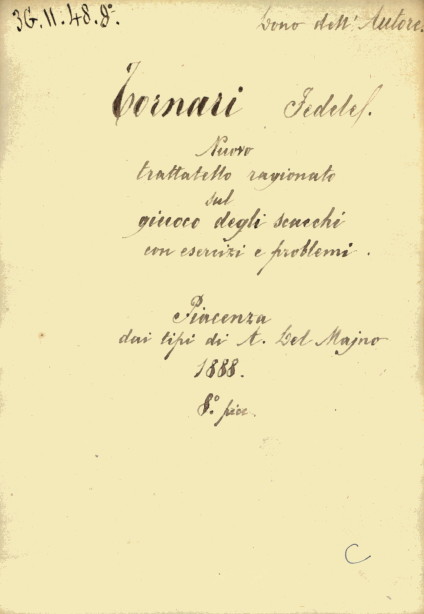 3G.II.48.8º.
Dono dell' Autore.
Tornari Fedele.
Nuovo
trattatello ragionato
sul
giuoco degli scacchi
con esercizi e problemi.
Piacenza
dai tipi di A. Del Majno
1888.
8.º picc.
C